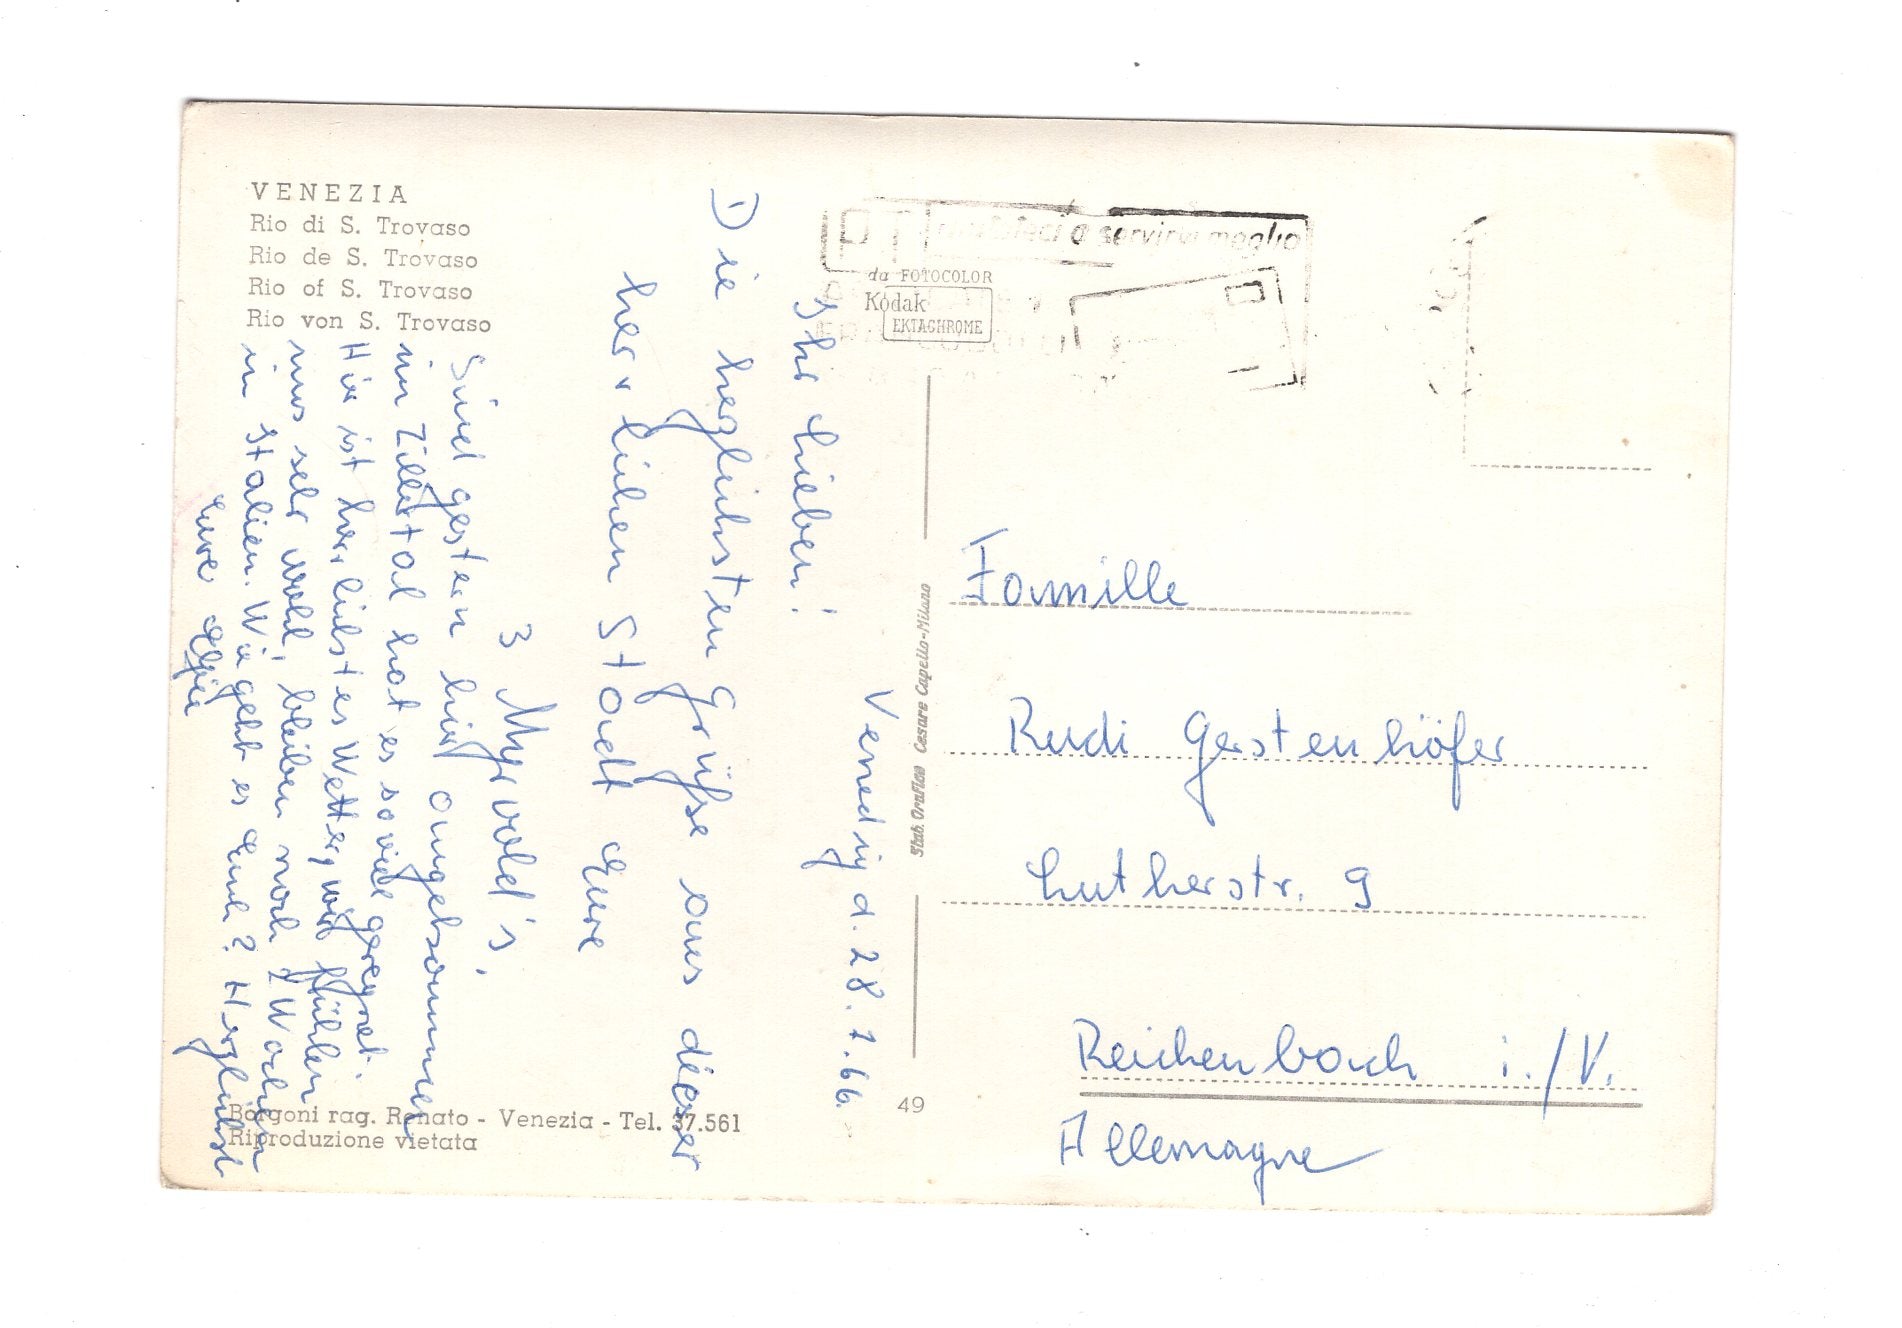 VENEZIA
Rio di S. Trovaso
Rio de S. Trovaso
Rio of S. Trovaso
Rio von S. Trovaso
Venedig d. 28.7.66.
Ihr Lieben!
Die herzlichsten Grüße aus dieser
herrlichen Stadt Eure
3 Myrvold's,
Sind gestern hier angekommen
im Zillertal hat es soviel geregnet.
Hier ist herrlichstes Wetter, wir fühlen
uns sehr wohl, bleiben noch 2 Wochen
in Italien. Wie geht es Euch? Herzlichst
Eure
PT
a servirvi meglio
da FOTOCOLOR
Kodak
EKTACHROME
Stab. Grafico Cesare Capello-Milano
Familie
Rudi Gerstenhöfer
Lutherstr. 9
Reichenbach i./V.
Allemagne
Borgoni rag. Renato - Venezia - Tel. 37.561
Riproduzione vietata
49